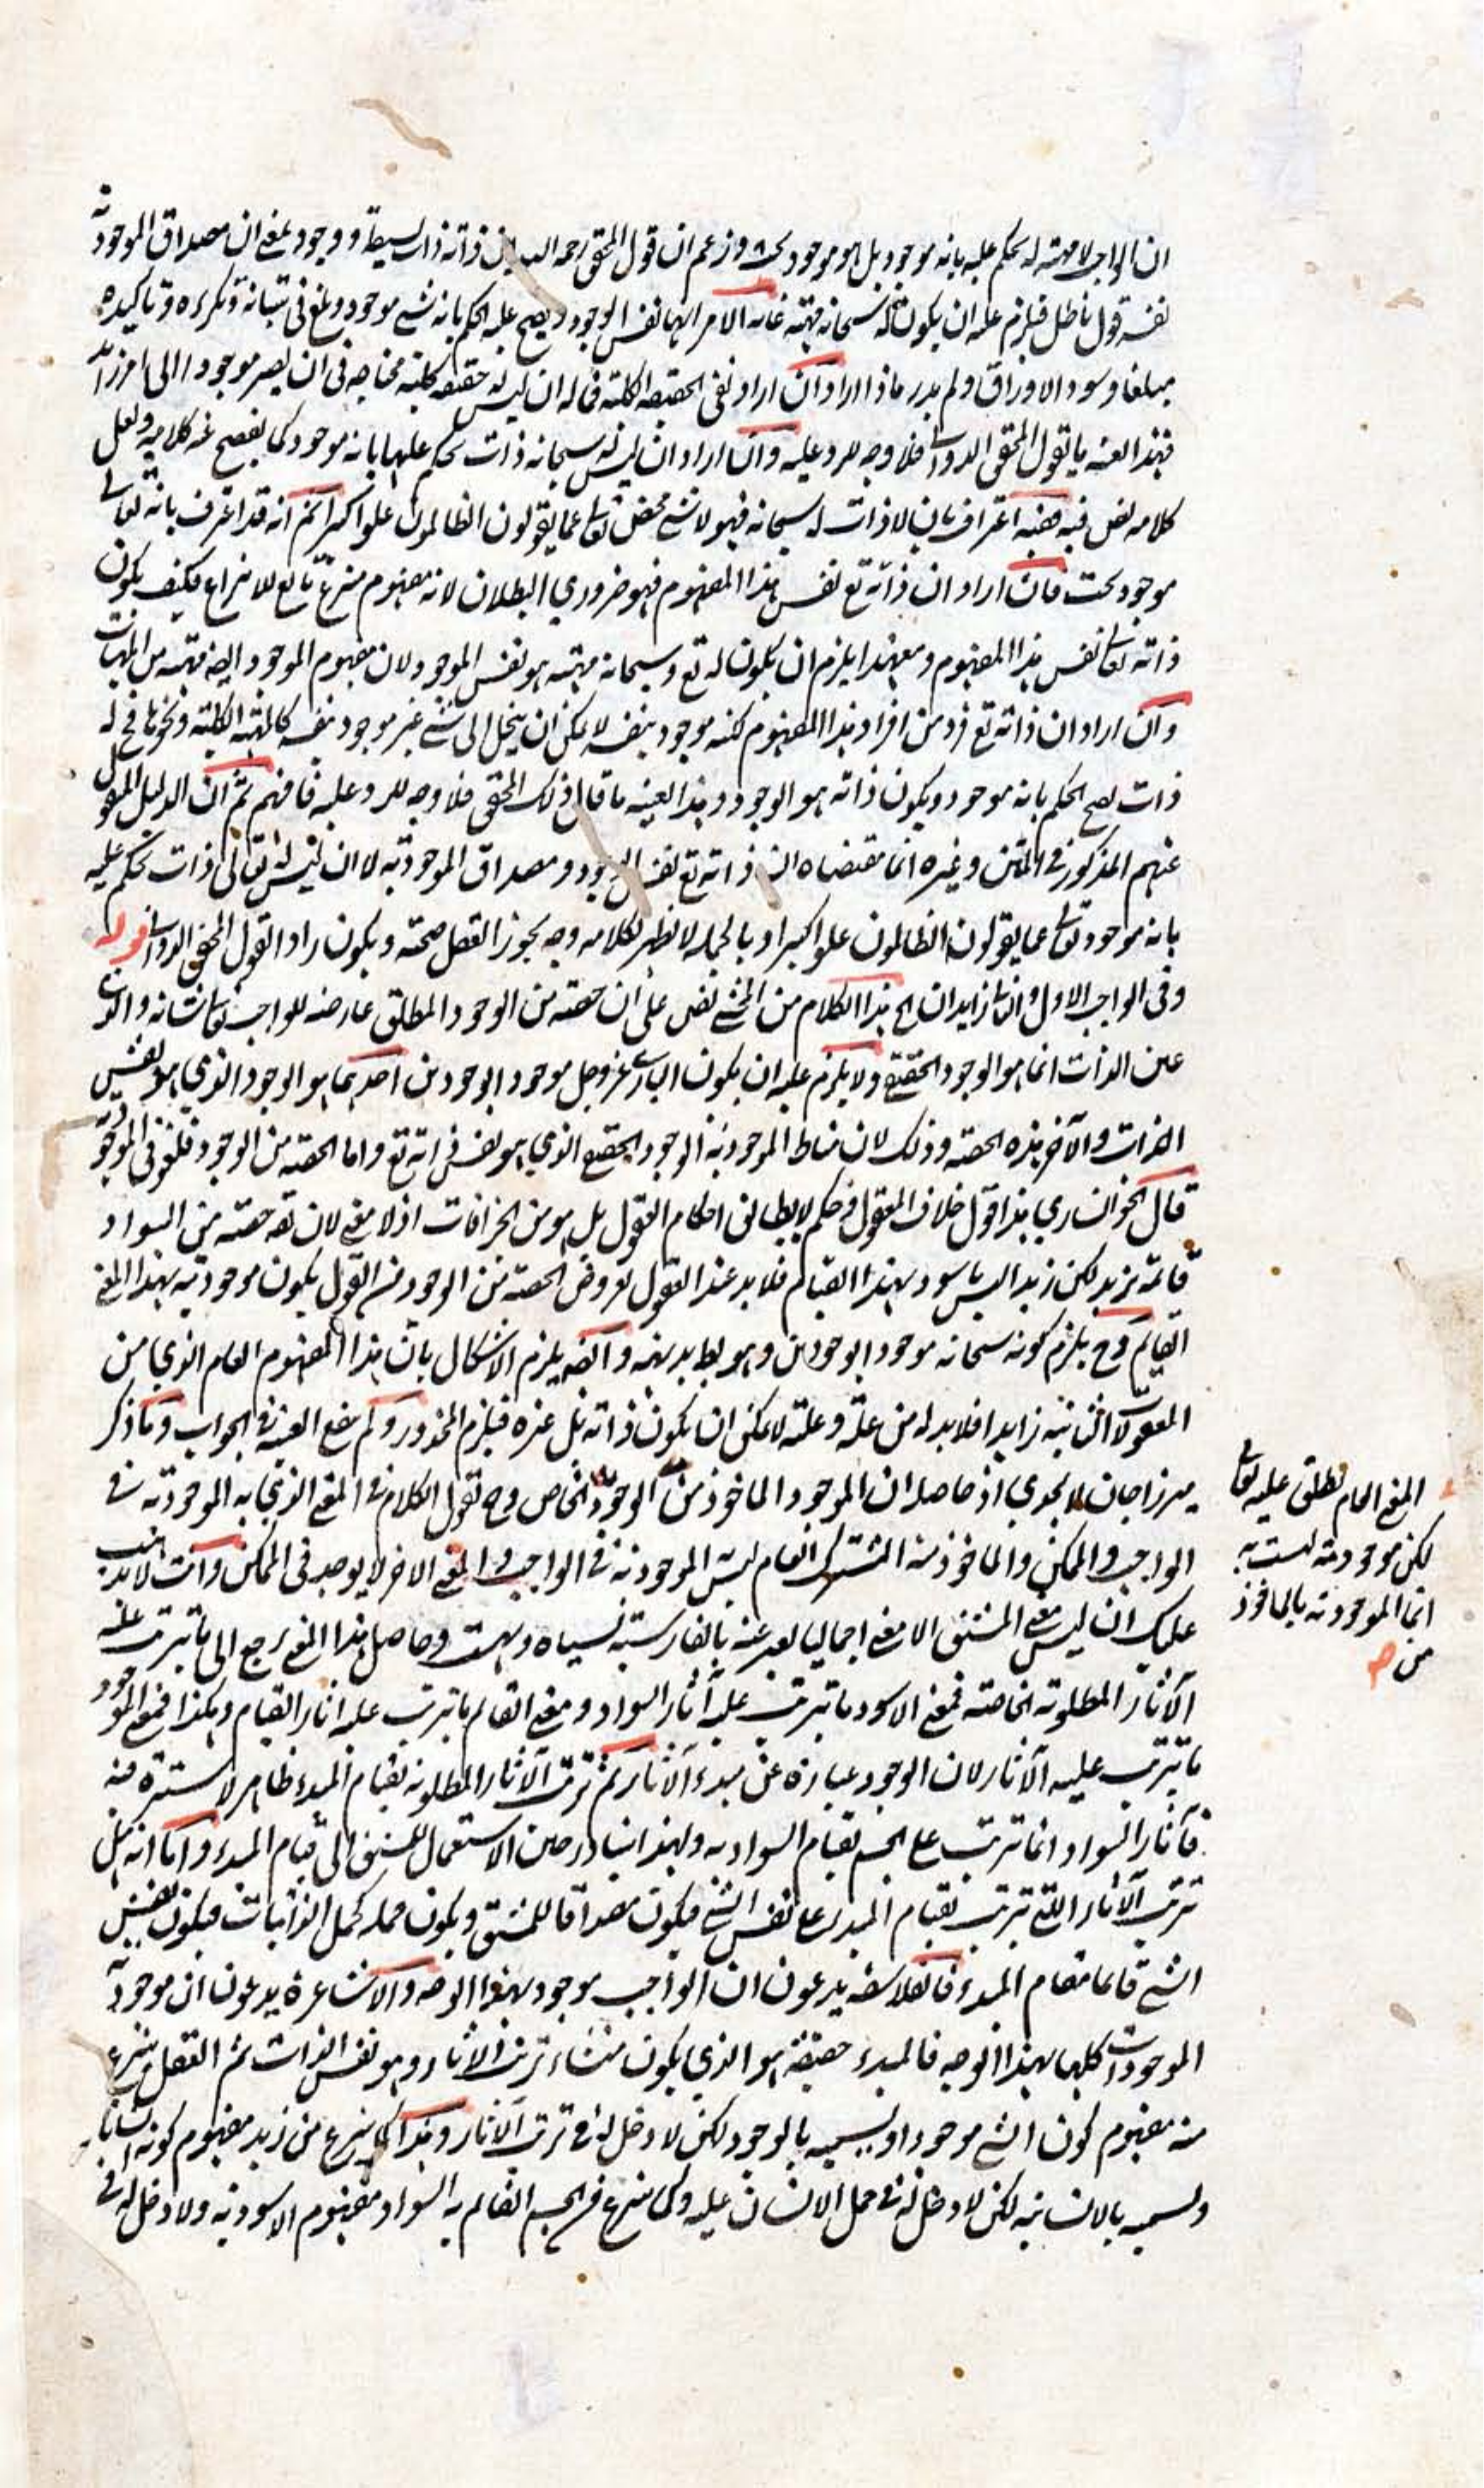 ان الواجب لا مهية له يحكم عليه بانه موجود بل هو موجود بحت وزعم ان قول المحقق رحمه الله ان ذاته ذات بسيطة ووجود بمعنى ان مصداق الموجودية
نفسه قول باطل فيلزم عليه ان يكون له سبحانه مهية غاية الامر انها نفس الوجود ويصح عليه الحكم بانه شيء موجود وبلغ في تبيانه وتكريره وتاكيده
مبلغا وسود الاوراق ولم يدر ماذا اراد فان اراد نفي الحقيقة الكلية فماله ان ليس له حقيقة كلية محتاجة في ان يصير موجودا الى امر زائد
فهذا العينه ما يقول المحقق الدواني فلا وجه للرد عليه وان اراد ان ليس له سبحانه ذات يحكم عليها بانه موجود كما يفصح عنه كلامه ولعل
كلامه نص فيه ففيه اعتراف بان لا ذات له سبحانه فهو لا شيء محض تعالى عما يقولون الظالمون علوا كبيرا ثم انه قد اعترف بانه تعالى
موجود بحت فان اراد ان ذاته تع نفس هذا المفهوم فهو ضروري البطلان لانه مفهوم منتزع تابع للانتزاع فكيف يكون
ذاته تعالى نفس هذا المفهوم ومعهذا يلزم ان يكون له تع وسبحانه مهية هو نفس الموجود لان مفهوم الموجود ايضا مهية من المهيات
وان اراد ان ذاته تع فرد من افراد هذا المفهوم لكنه موجود بنفسه لا يمكن ان ينحل الى شيء غير موجود بنفسه كالمهية الكلية ونحوها فح له
ذات يصح الحكم بانه موجود ويكون ذاته هو الوجود وهذا العينه ما قال ذلك المحقق فلا وجه للرد عليه فافهم ثم ان الدليل المنقول
عنهم المذكور في المتن وغيره انما مقتضاه ان ذاته تع نفس الوجود ومصداق الموجودية لا ان ليس له تعالى ذات يحكم عليه
بانه موجود تعالى عما يقولون الظالمون علوا كبيرا وبالجملة لا يظهر لكلامه وجه يجوز العقل صحته ويكون رادا لقول المحقق الدواني قوله
وفي الواجب الاول والثاني زايدان الخ هذا الكلام من المحشي نص على ان حصته من الوجود المطلق عارضه للواجب تعالى شانه والذي
عين الذات انما هو الوجود الحقيقي ولا يلزم عليه ان يكون الباري عز وجل موجودا بوجودين احدهما هو الوجود الذي هو نفس
الذات والآخر هذه الحصة وذلك لان مناط الموجودية الوجود الحقيقي الذي هو نفس ذاته تع واما الحصة من الوجود فلغو في الموجودية
قال الخوانساري هذا قول خلاف المعقول وحكم لا يطابق احكام العقول بل هو من الخرافات اذ لا معنى لان يقه حصته من السواد
قائمة بزيد لكن زيدا ليس باسود بهذا القيام فلا بد عند القول بعروض الحصة من الوجود من القول بكون موجوديته بهذا المعنى
القيام وح يلزم كونه سبحانه موجودا بوجودين وهو بط بديهة وايضه يلزم الاشكال بان هذا المفهوم العام الذي من
المعقولات الثانية زايد افلا بد له من علة وعلته لا يمكن ان يكون ذاته بل غيره فيلزم المحذور ولم ينفع العينية في الجواب وما ذكر
ميرزا جان لا يجدي اذ حاصله ان الموجود الماخوذ من الوجود الخاص وح نقول الكلام في المعنى الذي به الموجودية في
الواجب والممكن والماخوذ منه المشترك العام ليس الموجودية في الواجب والمعنى الاخر لا يوجد في الممكن وانت لا يذهب
عليك ان ليس معنى المشتق الا معنى اجماليا يعبر عنه بالفارسية بسياه وهست وحاصل هذا المعنى يرجع الى ما يترتب عليه
الآثار المطلوبة الخاصة فمعنى الاسود ما يترتب عليه آثار السواد ومعنى القائم ما يترتب عليه اثار القيام وهكذا فمعنى الموجود
ما يترتب عليه الآثار لان الوجود عبارة عن مبدء الآثار ثم ترتب الآثار المطلوبة بقيام المبدء ظاهر لا سترة فيه
فآثار السواد انما ترتب على الجسم بقيام السواد به ولهذا يتبادر حين الاستعمال للمشتق الى قيام المبدء واما انه هل
ترتب الآثار التي ترتب بقيام المبدء على نفس الشيء فيكون مصداقا للمشتق ويكون حمله كحمل الذاتيات فيكون نفس
الشيء قائما مقام المبدء فالفلاسفة يدعون ان الواجب موجود بهذا الوجه والاشاعرة يدعون ان موجودية
الموجودات كلها بهذا الوجه فالمبدء حقيقة هو الذي يكون منشاء ترتب الآثار وهو نفس الذات ثم العقل ينتزع
منه مفهوم كون الشيء موجودا ويسميه بالوجود لكن لا دخل له في ترتب الآثار وهذا كما ينتزع من زيد مفهوم كونه انسانا
ويسميه بالانسانية لكن لا دخل له في حمل الانسان عليه وكما ينتزع من الجسم القائم به السواد مفهوم الاسودية ولا دخل له في
المعنى العام يطلق عليه تعالى
لكن موجوديته ليست به
انما الموجودية بالماخوذ
من صح